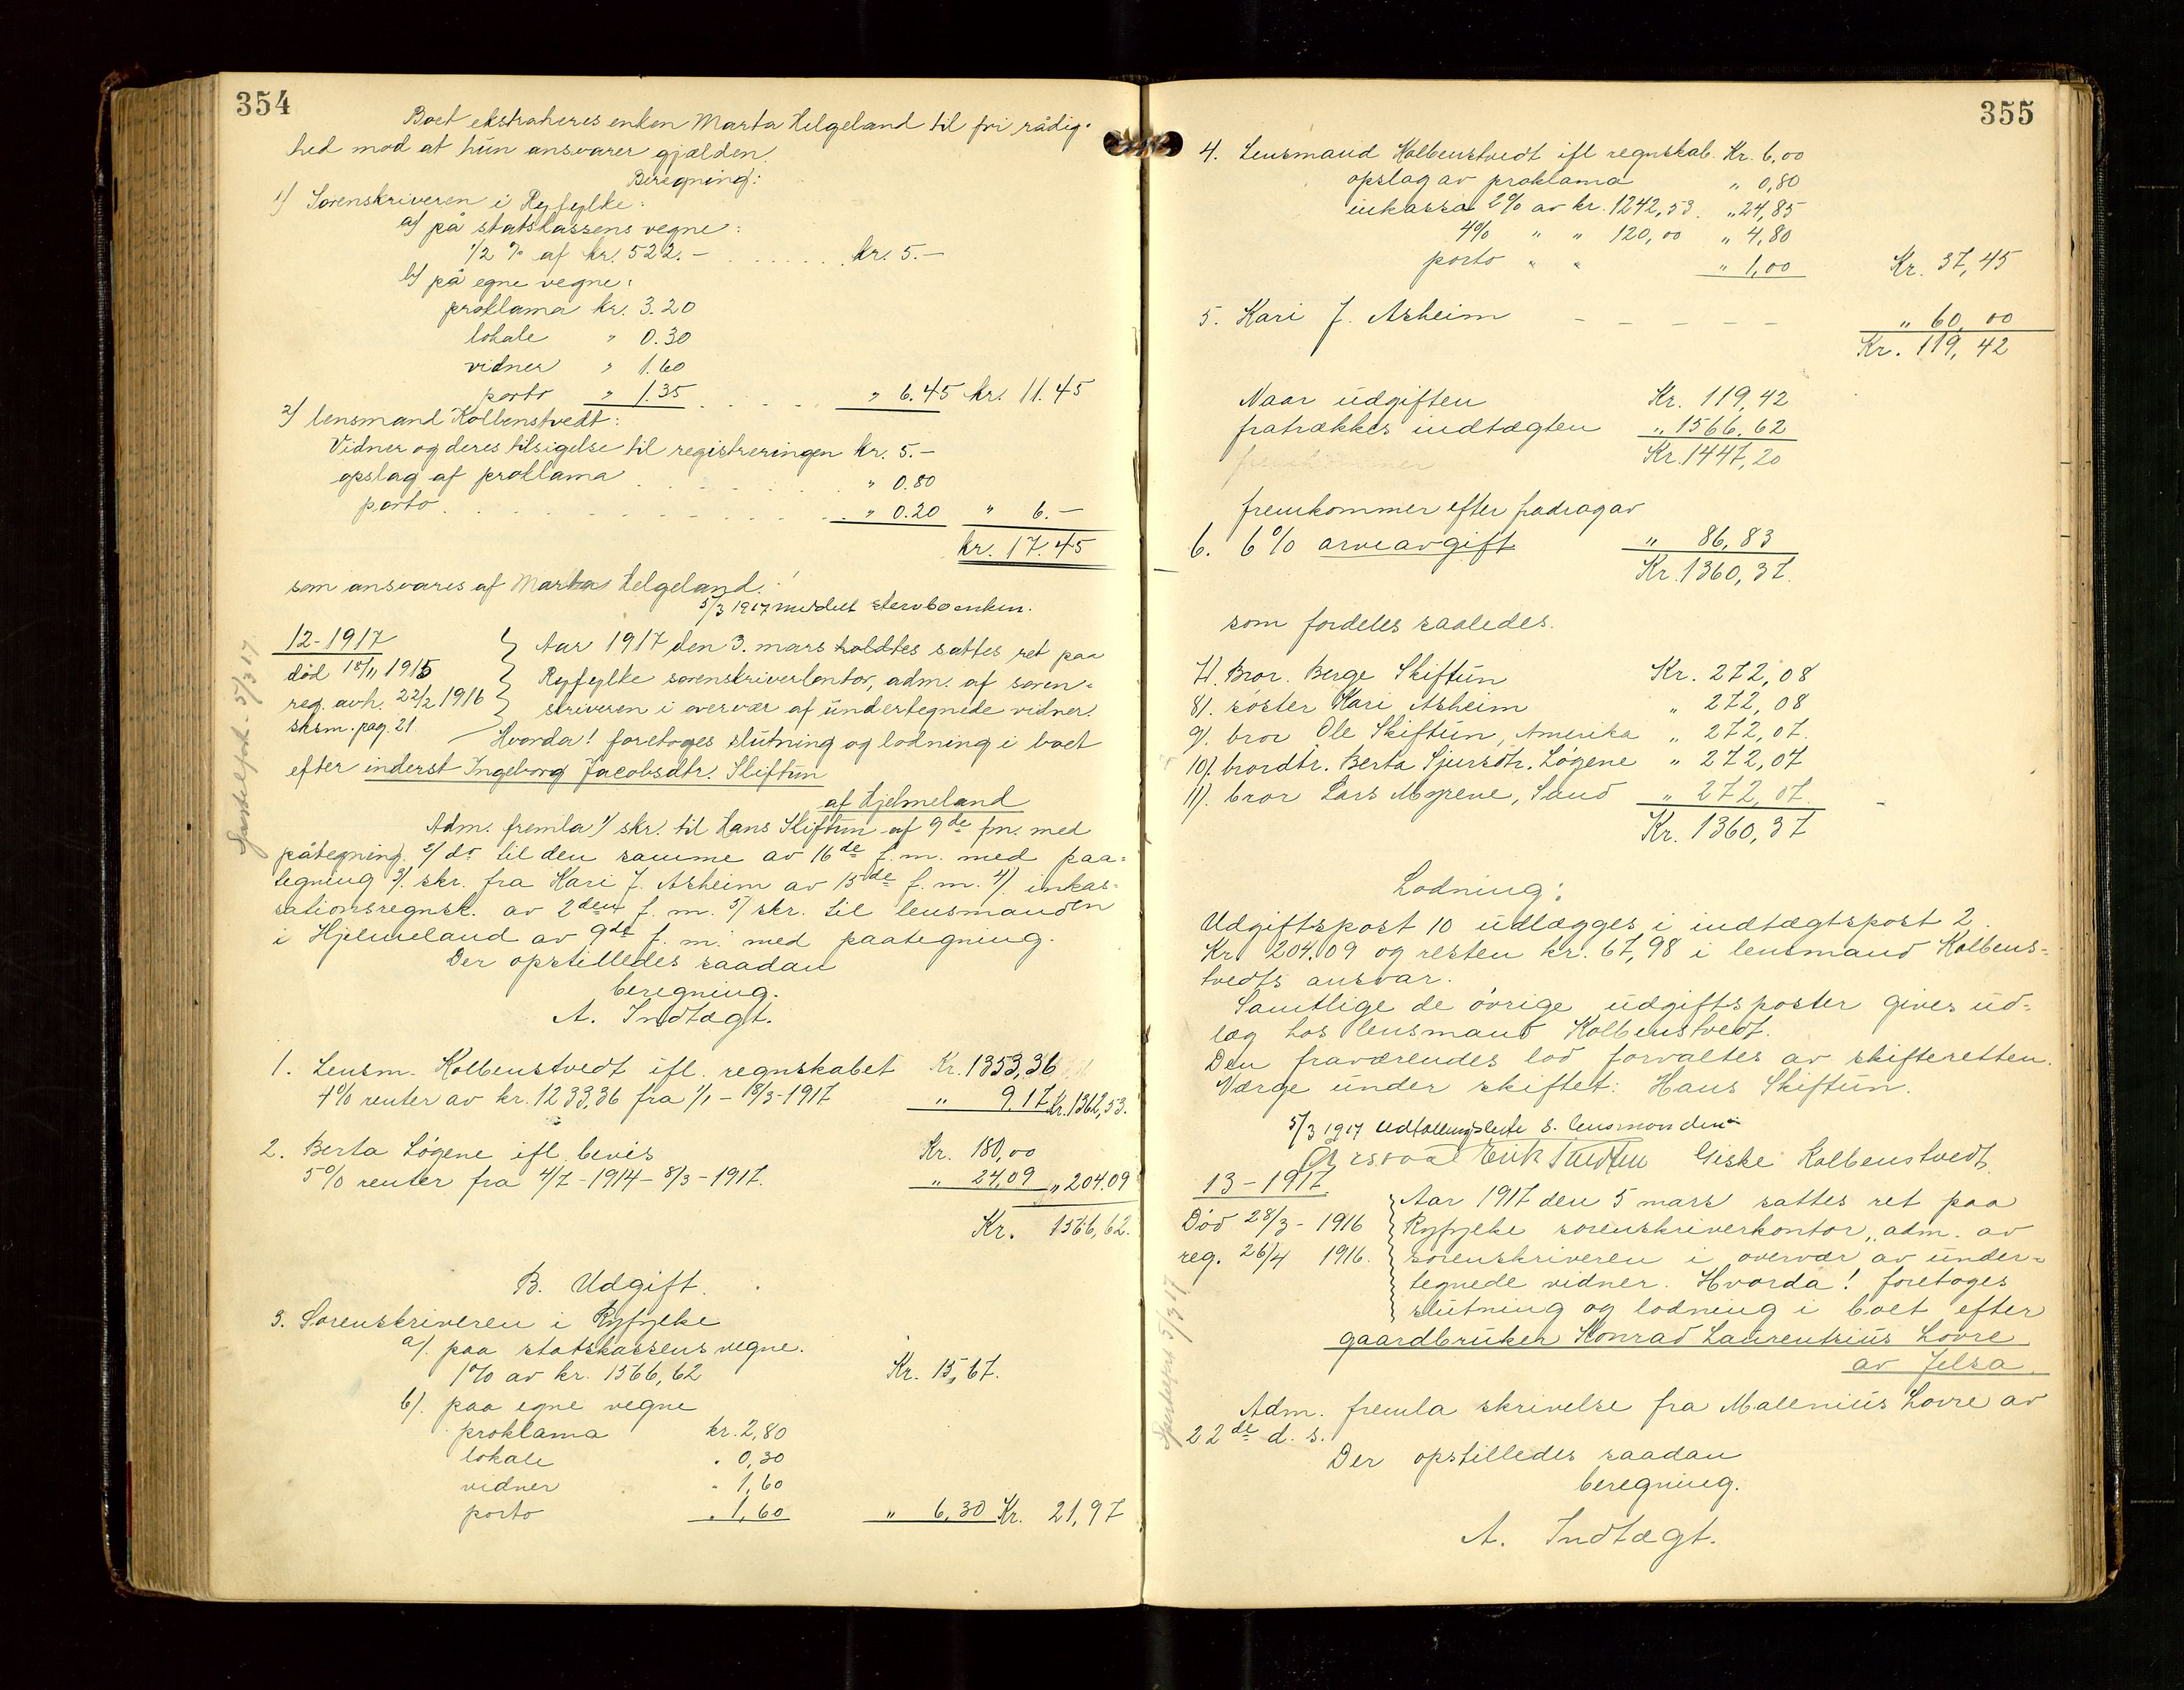 354
Boet ekstraheres enken Marta Helgeland til fri rådig-
hed mod at hun ansvarer gjælden.
Beregning:
1) Sorenskriveren i Ryfylke:
a) på statskassens vegne:
1/2 % af kr. 522.- . . . . . . kr. 5.-
b) på egne vegne:
proklama kr. 3.20
lokale " 0.30
vidner " 1.60
porto " 1.35 . . . . . " 6.45 kr. 11.45
2) lensmand Kolbenstvedt:
Vidner og deres tilsigelse til registreringen kr. 5.-
opslag af proklama . . . . . " 0.80
porto . . . . . . . . " 0.20 " 6.-
kr. 17.45
som ansvares af Marta Helgeland.
5/3 1917 meddelt stervboenken.
12-1917
død 18/11 1915
reg. avh. 22/2 1916
sksm. pag. 21
Aar 1917 den 3. mars holdtes sattes ret paa
Ryfylke sorenskriverkontor, adm. af soren-
skriveren i overvær af undertegnede vidner.
Hvorda! foretoges slutning og lodning i boet
efter inderst Ingeborg Jacobsdtr. Skiftun
af Hjelmeland
Adm. fremla 1/ skr. til Hans Skiftun af 9de fm. med
påtegning. 2/ do til den samme av 16de f.m. med paa-
tegning 3/. skr. fra Kari J. Asheim av 15de f.m. 4/. inkas-
sationsregnsk. av 2den f. m. 5/ skr. til lensmanden
i Hjelmeland av 9de f. m. med paategning.
Der opstilledes saadan
beregning.
A. Indtægt.
1. Lensm. Kolbenstvedt ifl. regnskabet Kr. 1353,36
4% renter av kr. 1233,36 fra 1/1 - 18/3-1917 " 9,17 Kr. 1362,53.
2. Berta Løgene ifl. bevis Kr. 180,00
5% renter fra 4/7-1914 - 8/3-1917. " 24,09 " 204.09
Kr. 1566,62.
B. Udgift.
3. Sorenskriveren i Ryfylke
a). paa statskassens vegne.
1% av kr. 1566,62 Kr. 15,67.
b). paa egne vegne
proklama kr. 2,80
lokale " 0,30
vidner " 1,60
porto " 1,60 " 6,30 Kr. 21,97
355
4. Lensmand Kolbenstvedt ifl regnskab. Kr. 6,00
opslag av proklama " 0,80
inkassa 2% av kr. 1242,53. " 24,85
4% " " 120,00 " 4,80
porto " " " 1,00 Kr. 37,45
5. Kari J. Asheim - - - - - " 60,00
Kr. 119,42
Naar udgiften Kr. 119,42
fratrækkes indtægten " 1566,62
Kr. 1447,20
fremkommer efter fradrag av
6. 6% arveavgift " 86,83
Kr. 1360,37.
som fordeles saaledes.
7). Bror. Berge Skiftun Kr. 272,08
8). søster Kari Asheim " 272,08
9). bror Ole Skiftun, Amerika " 272,07.
10). brordtr. Berta Sjursdtr. Løgene " 272,07
11). bror Lars Mgrene, Sand " 272,07.
Kr. 1360,37
Lodning:
Udgiftspost 10 udlægges i indtægtspost 2
Kr. 204.09 og resten kr. 67,98 i lensmand Kolbens-
tvedts ansvar.
Samtlige de øvrige udgiftsposter gives ud-
læg hos lensmand Kolbenstvedt.
Den fraværendes lod forvaltes av skifteretten.
Værge under skiftet: Hans Skiftun.
5/3 1917 Udtællingsliste s. lensmanden
Erik Giske Kolbenstvedt.
13-1917
Død 28/3 - 1916
reg. 26/4 1916.
Aar 1917 den 5 mars sattes ret paa
Ryfylke sorenskriverkontor, adm. av
sorenskriveren i overvær av under-
tegnede vidner. Hvorda! foretoges
slutning og lodning i boet efter
gaardbruker Konrad Laurentsius Lovre
av Jelsa.
Adm. fremla skrivelse fra Malenius Lovre av
22de d. s.
Der opstilledes saadan
beregning.
A. Indtægt.